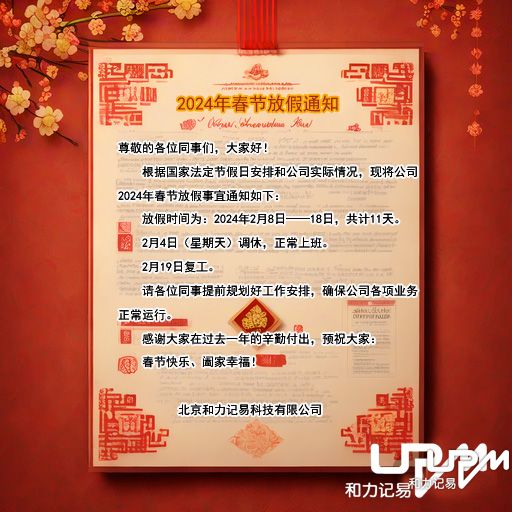 2024年春节放假通知
尊敬的各位同事们，大家好！
根据国家法定节假日安排和公司实际情况，现将公司
2024年春节放假事宜通知如下：
放假时间为：2024年2月8日——18日，共计11天。
2月4日（星期天）调休，正常上班。
2月19日复工。
请各位同事提前规划好工作安排，确保公司各项业务
正常运行。
感谢大家在过去一年的辛勤付出，预祝大家：
春节快乐、阖家幸福！
北京和力记易科技有限公司
和力记易
和力记易